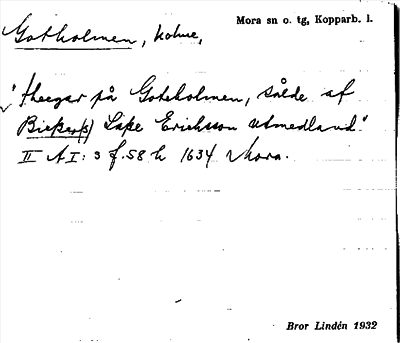 Gotholmen, holme,
Mora sn o. tg, Kopparb. l.
"theegar på Goteholmen, sålde af
Erichsson utmedland."
II A I: 3 f. 58 h 1634 Mora.
Bror Lindén 1932